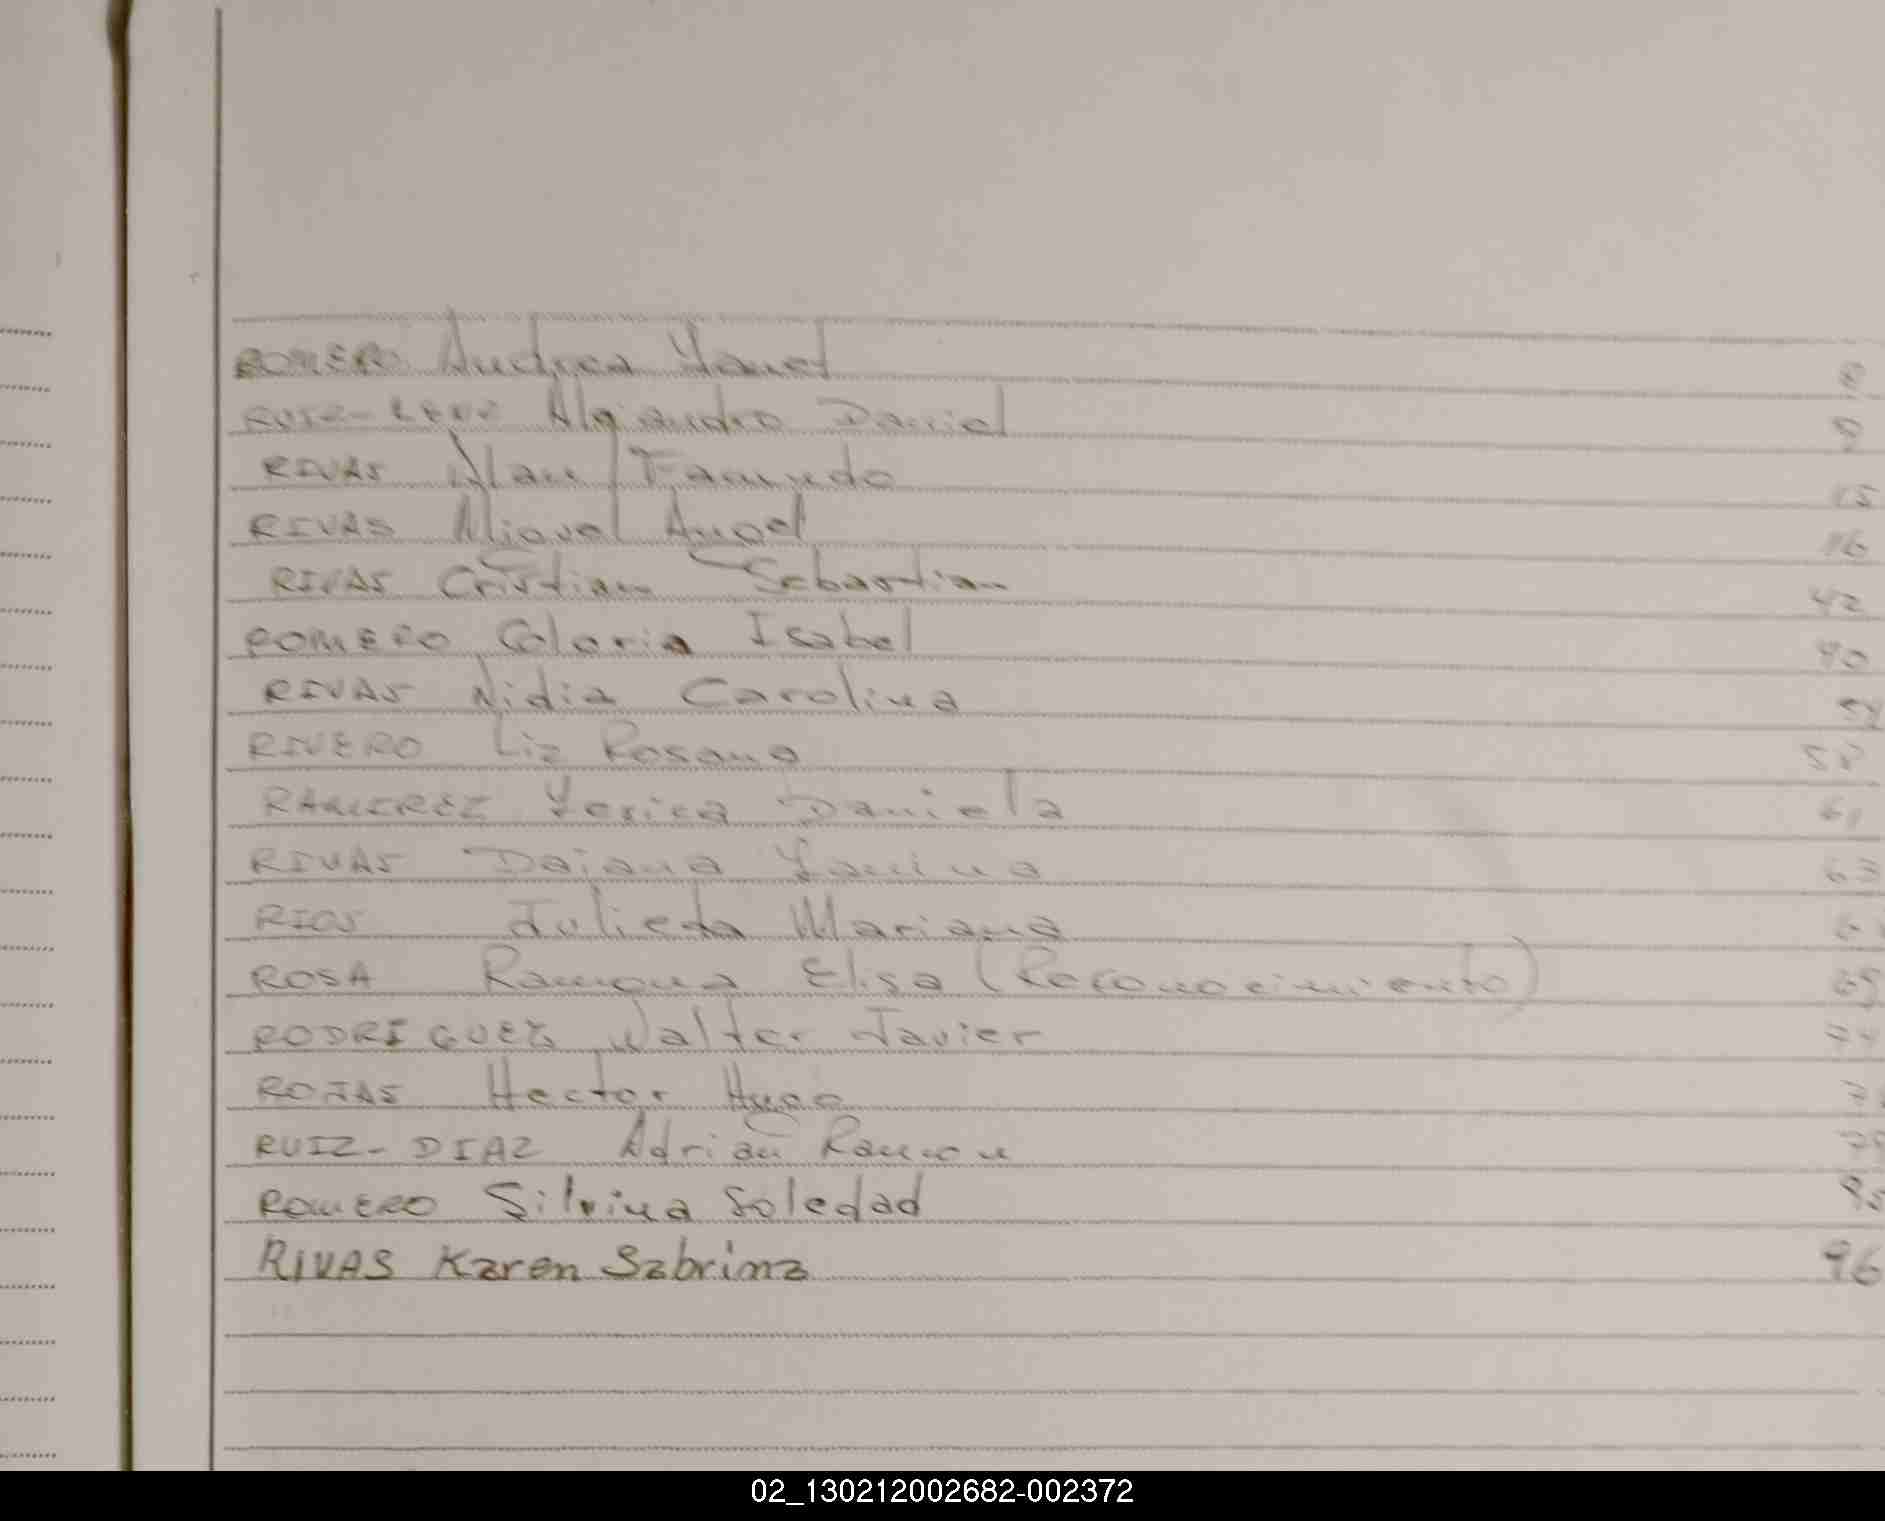 ROMERO Andrea Yanet 8
Alejandro Daniel 9
RIVAS Alan Facundo 15
RIVAS Miguel Angel 16
RIVAS Cristian Sebastian 42
ROMERO Isabel 40
RIVAS Nidia Carolina
RIVERO Liz Rosana 58
RAMIREZ Yesica Daniela 61
RIVAS Daiana Yanina 63
RIOS Julieta Mariana
ROSA Ramona Elisa (Reconocimiento) 69
RODRIGUEZ Walter Javier
ROJAS Hector Hugo
RUIZ-DIAZ Adrian Ramon
ROMERO Silvina Soledad 95
RIVAS Karen Sabrina 96
02_130212002682-002372